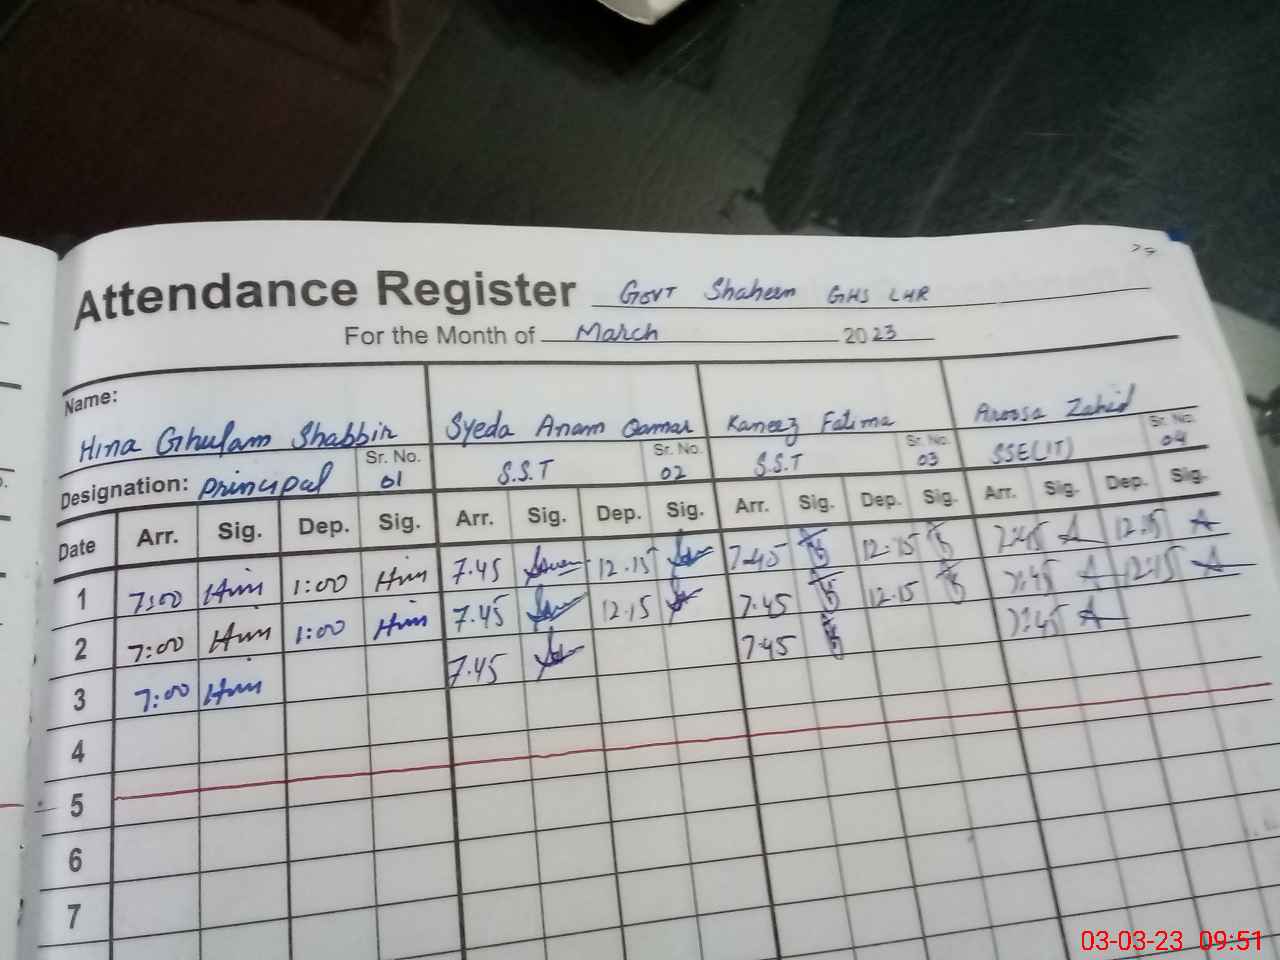 Attendance Register Govt Shaheen GHS LHR
For the Month of March 2023
Name:
Hina Ghulam Shabbir Syeda Anam Qamar Kaneez Fatima Aroosa Zahid
Designation: Principal Sr. No. 01 S.S.T Sr. No. 02 S.S.T Sr. No. 03 SSE(IT) Sr. No. 04
Date Arr. Sig. Dep. Sig. Arr. Sig. Dep. Sig. Arr. Sig. Dep. Sig. Arr. Sig. Dep. Sig.
1 7:00 1:00 7.45 12.15 7.45 12.15 7:45 A 12:15 A
2 7:00 1:00 7.45 12.15 7.45 12.15 7:45 A 12:15 A
3 7:00 7.45 7.45 7:45 A
4
5
6
7
03-03-23 09:51